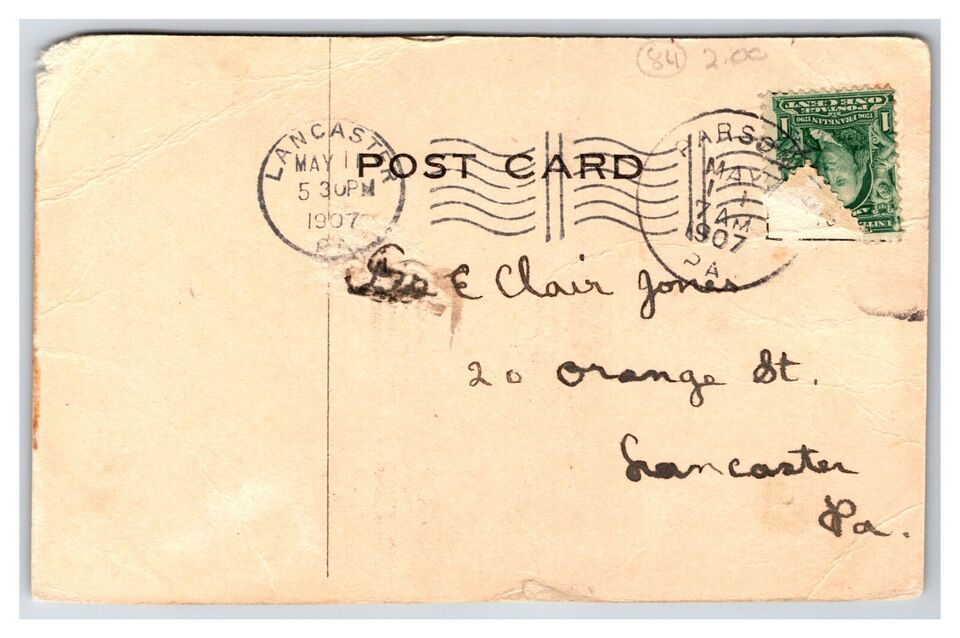 84 2.00
ONE CENT
POSTAGE
1706 FRANKLIN 1790
1 1
UNITED
LANCASTER
MAY 1
5 30PM
1907
PA.
POST CARD
PARSO
MAY
1
7 AM
1907
PA.
E Clair Jones
20 Orange St.
Lancaster
Pa.